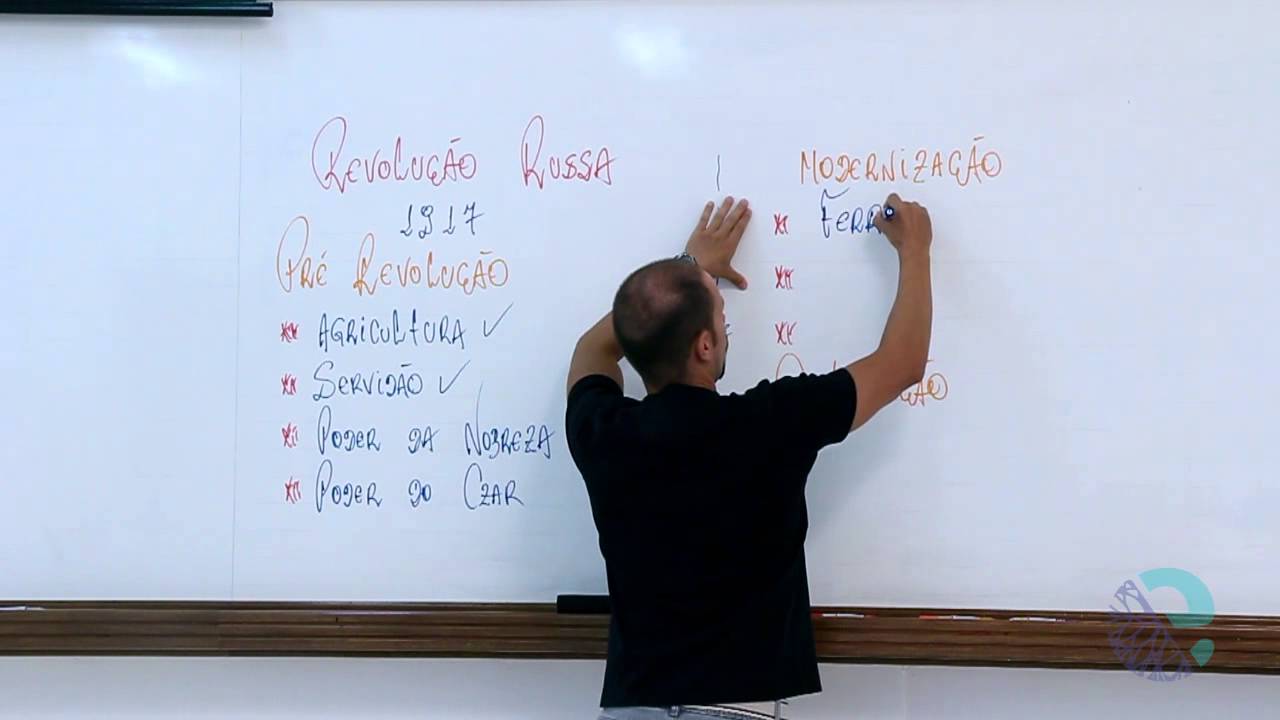 REVOLUÇÃO RUSSA
1917
PRÉ REVOLUÇÃO
** AGRICULTURA ✓
** SERVIDÃO ✓
** PODER DA NOBREZA
** PODER DO CZAR
MODERNIZAÇÃO
** FERR
**
**